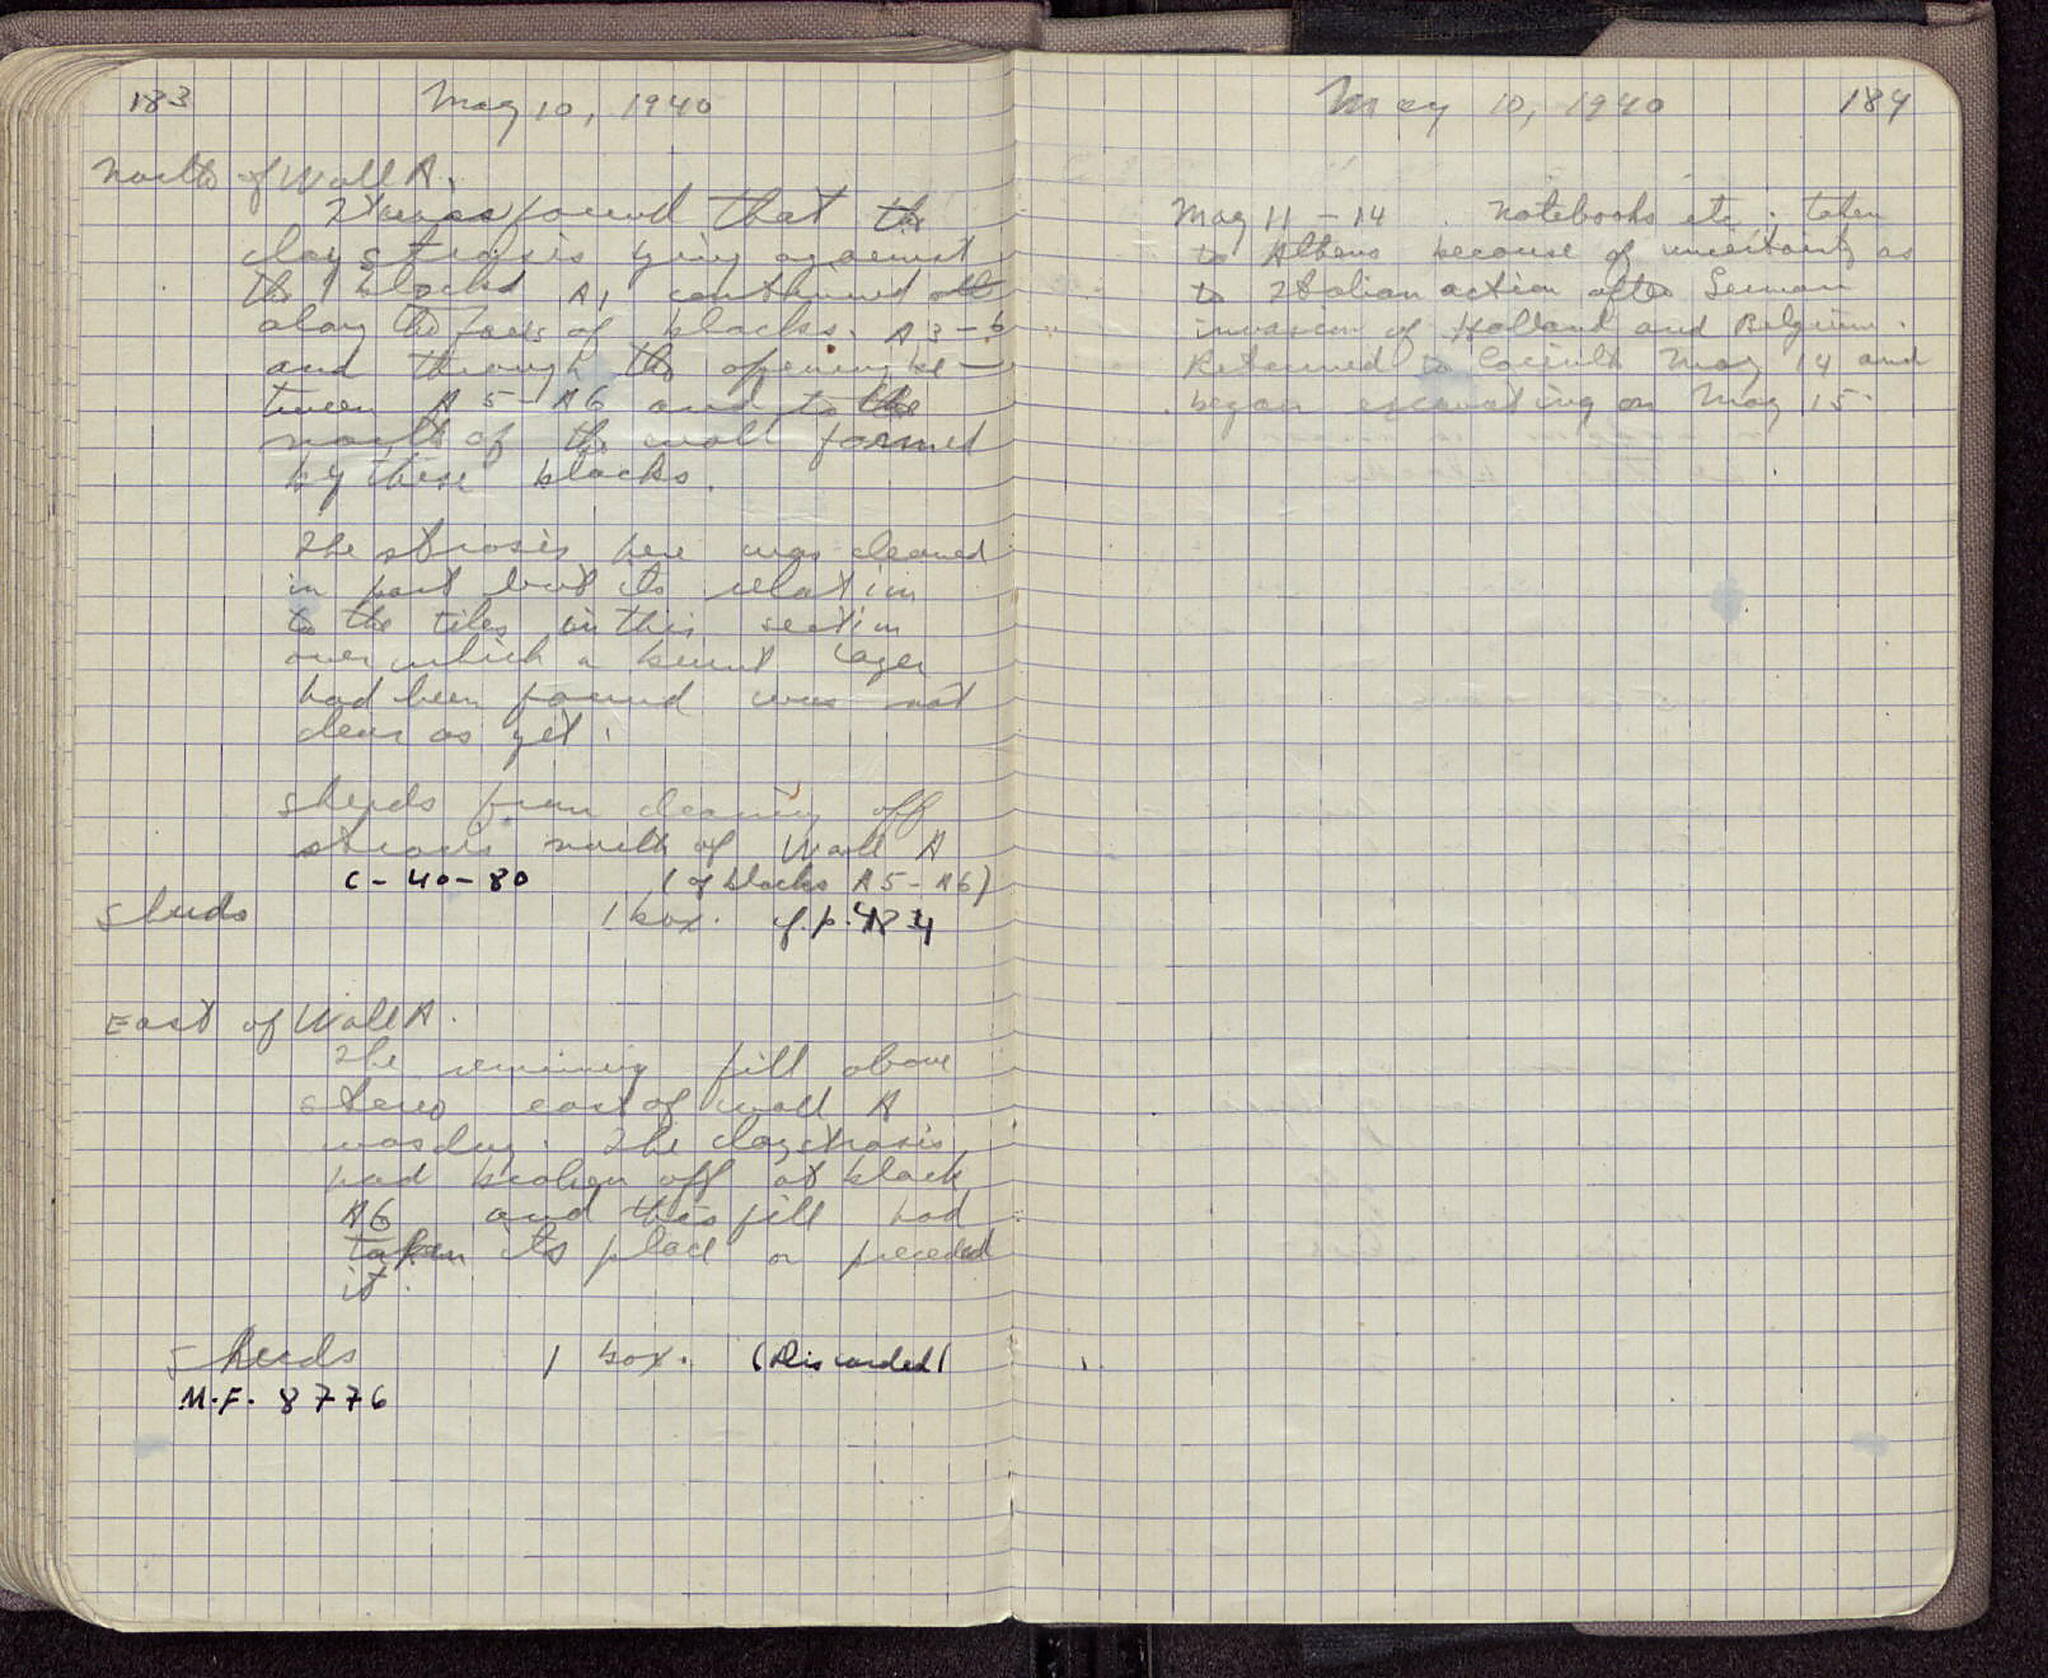 183
May 10, 1940
North of Wall A.
It was found that the
clay strosis lying against
the blocks A1 continued all
along the faces of blocks A3-6
and through the opening be-
tween A5-A6 and to the
north of the wall formed
by these blocks.
The strosis here was cleaned
in part but its relation
to the tiles in this section
over which a burnt layer
had been found was not
clear as yet.
Sherds from cleaning off
strosis north of Wall A
C-40-80 (of blocks A5-A6)
Sherds 1 box. cf. p.
East of Wall A.
The remaining fill above
stereo east of wall A
was dug. The clay strosis
had broken off at block
A6 and this fill had
taken its place or preceded
it.
Sherds 1 box. (Discarded)
M.F. 8776
May 10, 1940
184
May 11-14. Notebooks etc. taken
to Athens because of uncertainty as
to Italian action after German
invasion of Holland and Belgium.
Returned to Corinth May 14 and
began excavating on May 15.